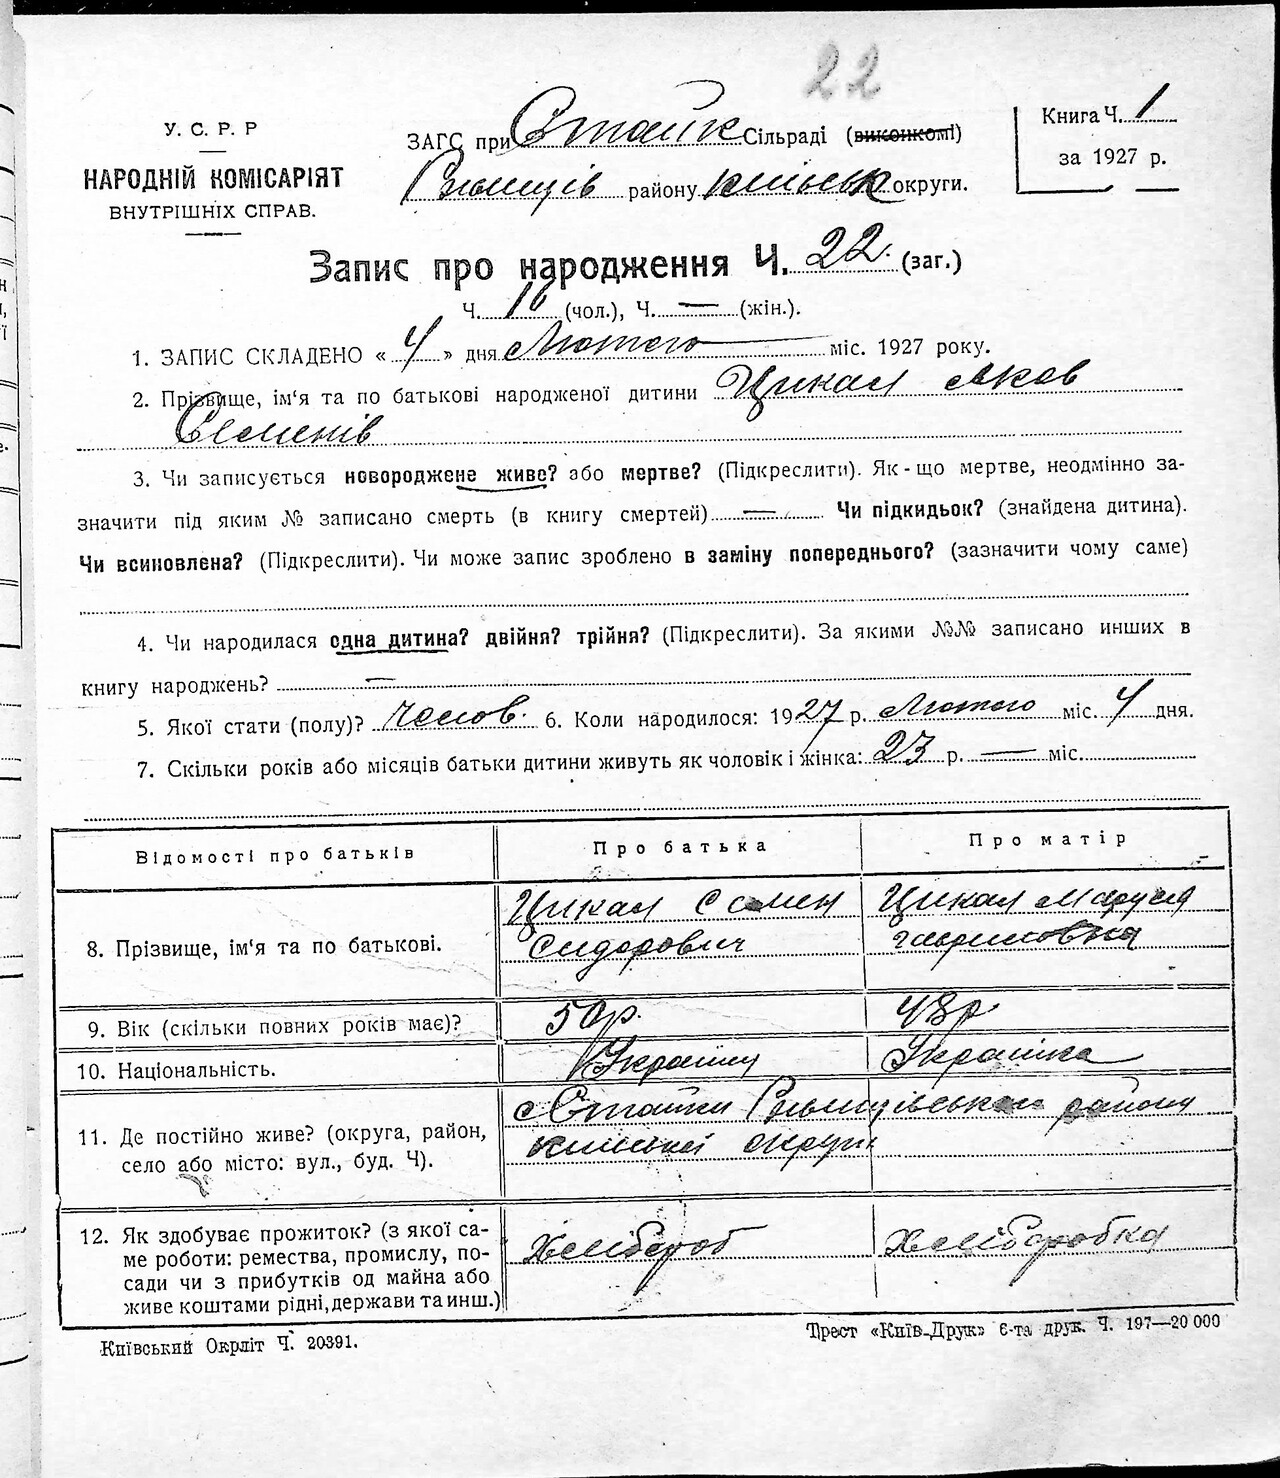 22
У. С. Р. Р
НАРОДНІЙ КОМІСАРІЯТ
ВНУТРІШНІХ СПРАВ.
ЗАГС при Стайк Сільраді (виконкомі)
Ржищів району Київськ округи.
Книга Ч. 1
за 1927 р.
Запис про народження Ч. 22 (заг.)
Ч. (чол.), Ч. — (жін.).
1. ЗАПИС СКЛАДЕНО « 4 » дня Лютого міс. 1927 року.
2. Прізвище, ім'я та по батькові народженої дитини Цикал Яков
Семенів
3. Чи записується новороджене живе? або мертве? (Підкреслити). Як-що мертве, неодмінно за-
значити під яким № записано смерть (в книгу смертей) — Чи підкидьок? (знайдена дитина).
Чи всиновлена? (Підкреслити). Чи може запис зроблено в заміну попереднього? (зазначити чому саме)
4. Чи народилася одна дитина? двійня? трійня? (Підкреслити). За якими №№ записано инших в
книгу народжень? —
5. Якої стати (полу)? Чолов. 6. Коли народилося: 1927 р. Лютого міс. 4 дня.
7. Скільки років або місяців батьки дитини живуть як чоловік і жінка: 23 р. — міс.
Відомості про батьків Про батька Про матір
8. Прізвище, ім'я та по батькові.
Цикал Семен
Сидорович
Цикал Маруся
Гавриловна
9. Вік (скільки повних років має)? 50р. 43р
10. Національність. Українц Українка
11. Де постійно живе? (округа, район,
село або місто: вул., буд. Ч).
с Стайки Ржищівського району
Київської округи
12. Як здобуває прожиток? (з якої са-
ме роботи: ремества, промислу, по-
сади чи з прибутків од майна або
живе коштами рідні, держави та инш.)
Хлібороб Хліборобка
Київський Окрліт Ч. 20391.
Трест «Київ-Друк» 6-та друк. Ч. 197—20 000